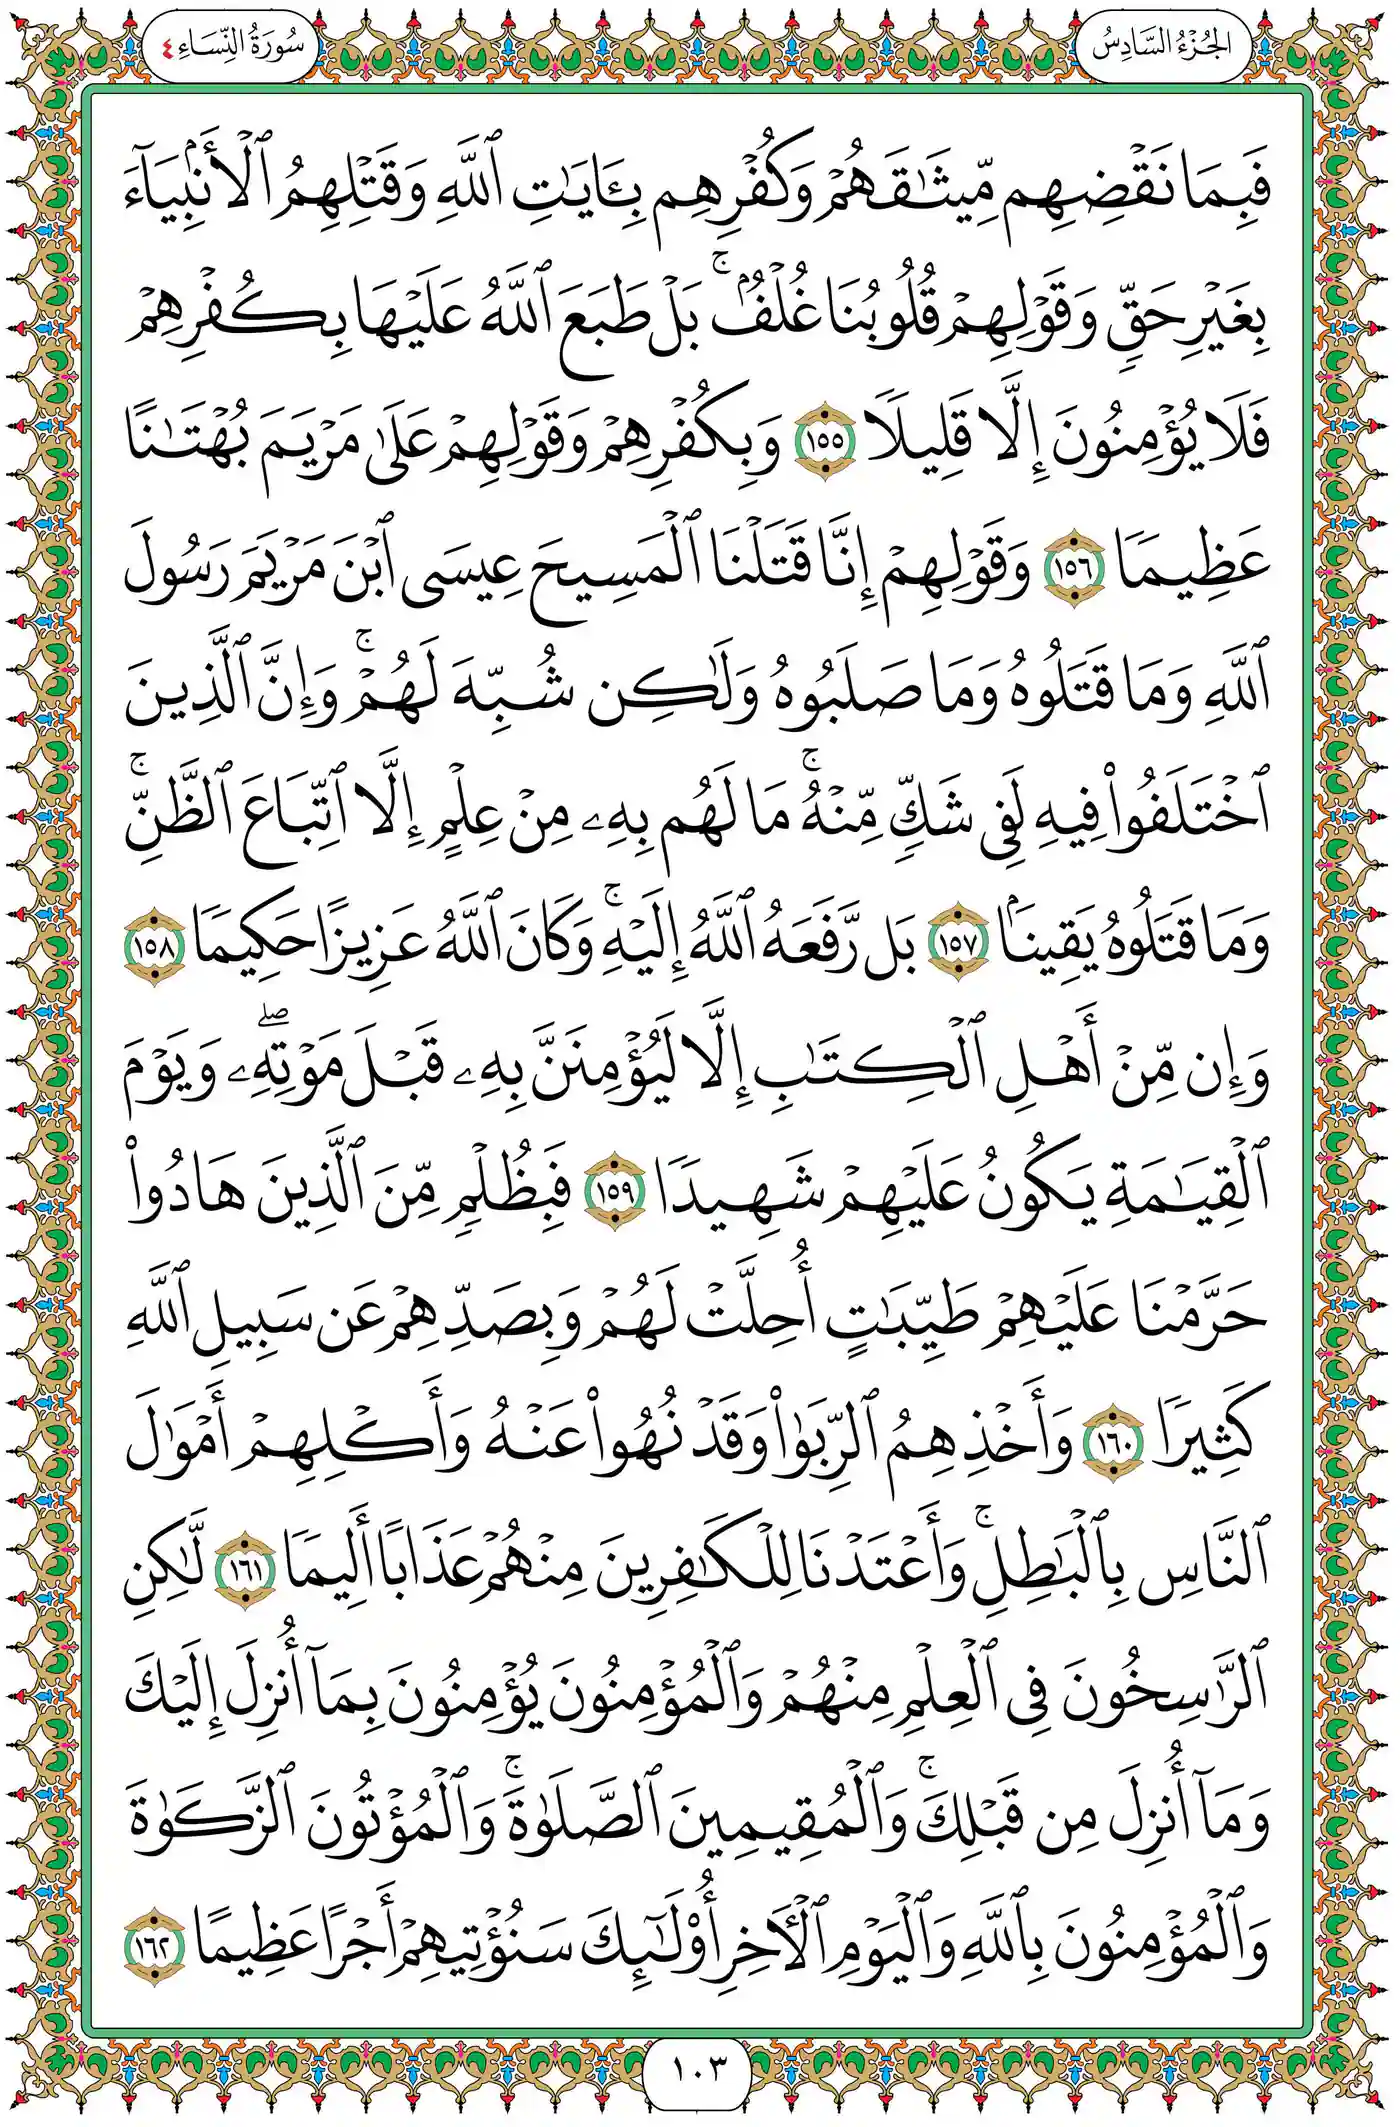 الجُزْءُ السَّادِسُ
سُورَةُ النِّسَاءِ ٤
فَبِمَا نَقۡضِهِم مِّيثَٰقَهُمۡ وَكُفۡرِهِم بِـَٔايَٰتِ ٱللَّهِ وَقَتۡلِهِمُ ٱلۡأَنۢبِيَآءَ
بِغَيۡرِ حَقّٖ وَقَوۡلِهِمۡ قُلُوبُنَا غُلۡفُۢۚ بَلۡ طَبَعَ ٱللَّهُ عَلَيۡهَا بِكُفۡرِهِمۡ
فَلَا يُؤۡمِنُونَ إِلَّا قَلِيلٗا ١٥٥ وَبِكُفۡرِهِمۡ وَقَوۡلِهِمۡ عَلَىٰ مَرۡيَمَ بُهۡتَٰنًا
عَظِيمٗا ١٥٦ وَقَوۡلِهِمۡ إِنَّا قَتَلۡنَا ٱلۡمَسِيحَ عِيسَى ٱبۡنَ مَرۡيَمَ رَسُولَ
ٱللَّهِ وَمَا قَتَلُوهُ وَمَا صَلَبُوهُ وَلَٰكِن شُبِّهَ لَهُمۡۚ وَإِنَّ ٱلَّذِينَ
ٱخۡتَلَفُواْ فِيهِ لَفِي شَكّٖ مِّنۡهُۚ مَا لَهُم بِهِۦ مِنۡ عِلۡمٍ إِلَّا ٱتِّبَاعَ ٱلظَّنِّۚ
وَمَا قَتَلُوهُ يَقِينَۢا ١٥٧ بَل رَّفَعَهُ ٱللَّهُ إِلَيۡهِۚ وَكَانَ ٱللَّهُ عَزِيزًا حَكِيمٗا ١٥٨
وَإِن مِّنۡ أَهۡلِ ٱلۡكِتَٰبِ إِلَّا لَيُؤۡمِنَنَّ بِهِۦ قَبۡلَ مَوۡتِهِۦۖ وَيَوۡمَ
ٱلۡقِيَٰمَةِ يَكُونُ عَلَيۡهِمۡ شَهِيدٗا ١٥٩ فَبِظُلۡمٖ مِّنَ ٱلَّذِينَ هَادُواْ
حَرَّمۡنَا عَلَيۡهِمۡ طَيِّبَٰتٍ أُحِلَّتۡ لَهُمۡ وَبِصَدِّهِمۡ عَن سَبِيلِ ٱللَّهِ
كَثِيرٗا ١٦٠ وَأَخۡذِهِمُ ٱلرِّبَوٰاْ وَقَدۡ نُهُواْ عَنۡهُ وَأَكۡلِهِمۡ أَمۡوَٰلَ
ٱلنَّاسِ بِٱلۡبَٰطِلِۚ وَأَعۡتَدۡنَا لِلۡكَٰفِرِينَ مِنۡهُمۡ عَذَابًا أَلِيمٗا ١٦١ لَّٰكِنِ
ٱلرَّٰسِخُونَ فِي ٱلۡعِلۡمِ مِنۡهُمۡ وَٱلۡمُؤۡمِنُونَ يُؤۡمِنُونَ بِمَآ أُنزِلَ إِلَيۡكَ
وَمَآ أُنزِلَ مِن قَبۡلِكَۚ وَٱلۡمُقِيمِينَ ٱلصَّلَوٰةَۚ وَٱلۡمُؤۡتُونَ ٱلزَّكَوٰةَ
وَٱلۡمُؤۡمِنُونَ بِٱللَّهِ وَٱلۡيَوۡمِ ٱلۡأٓخِرِ أُوْلَٰٓئِكَ سَنُؤۡتِيهِمۡ أَجۡرًا عَظِيمًا ١٦٢
١٠٣